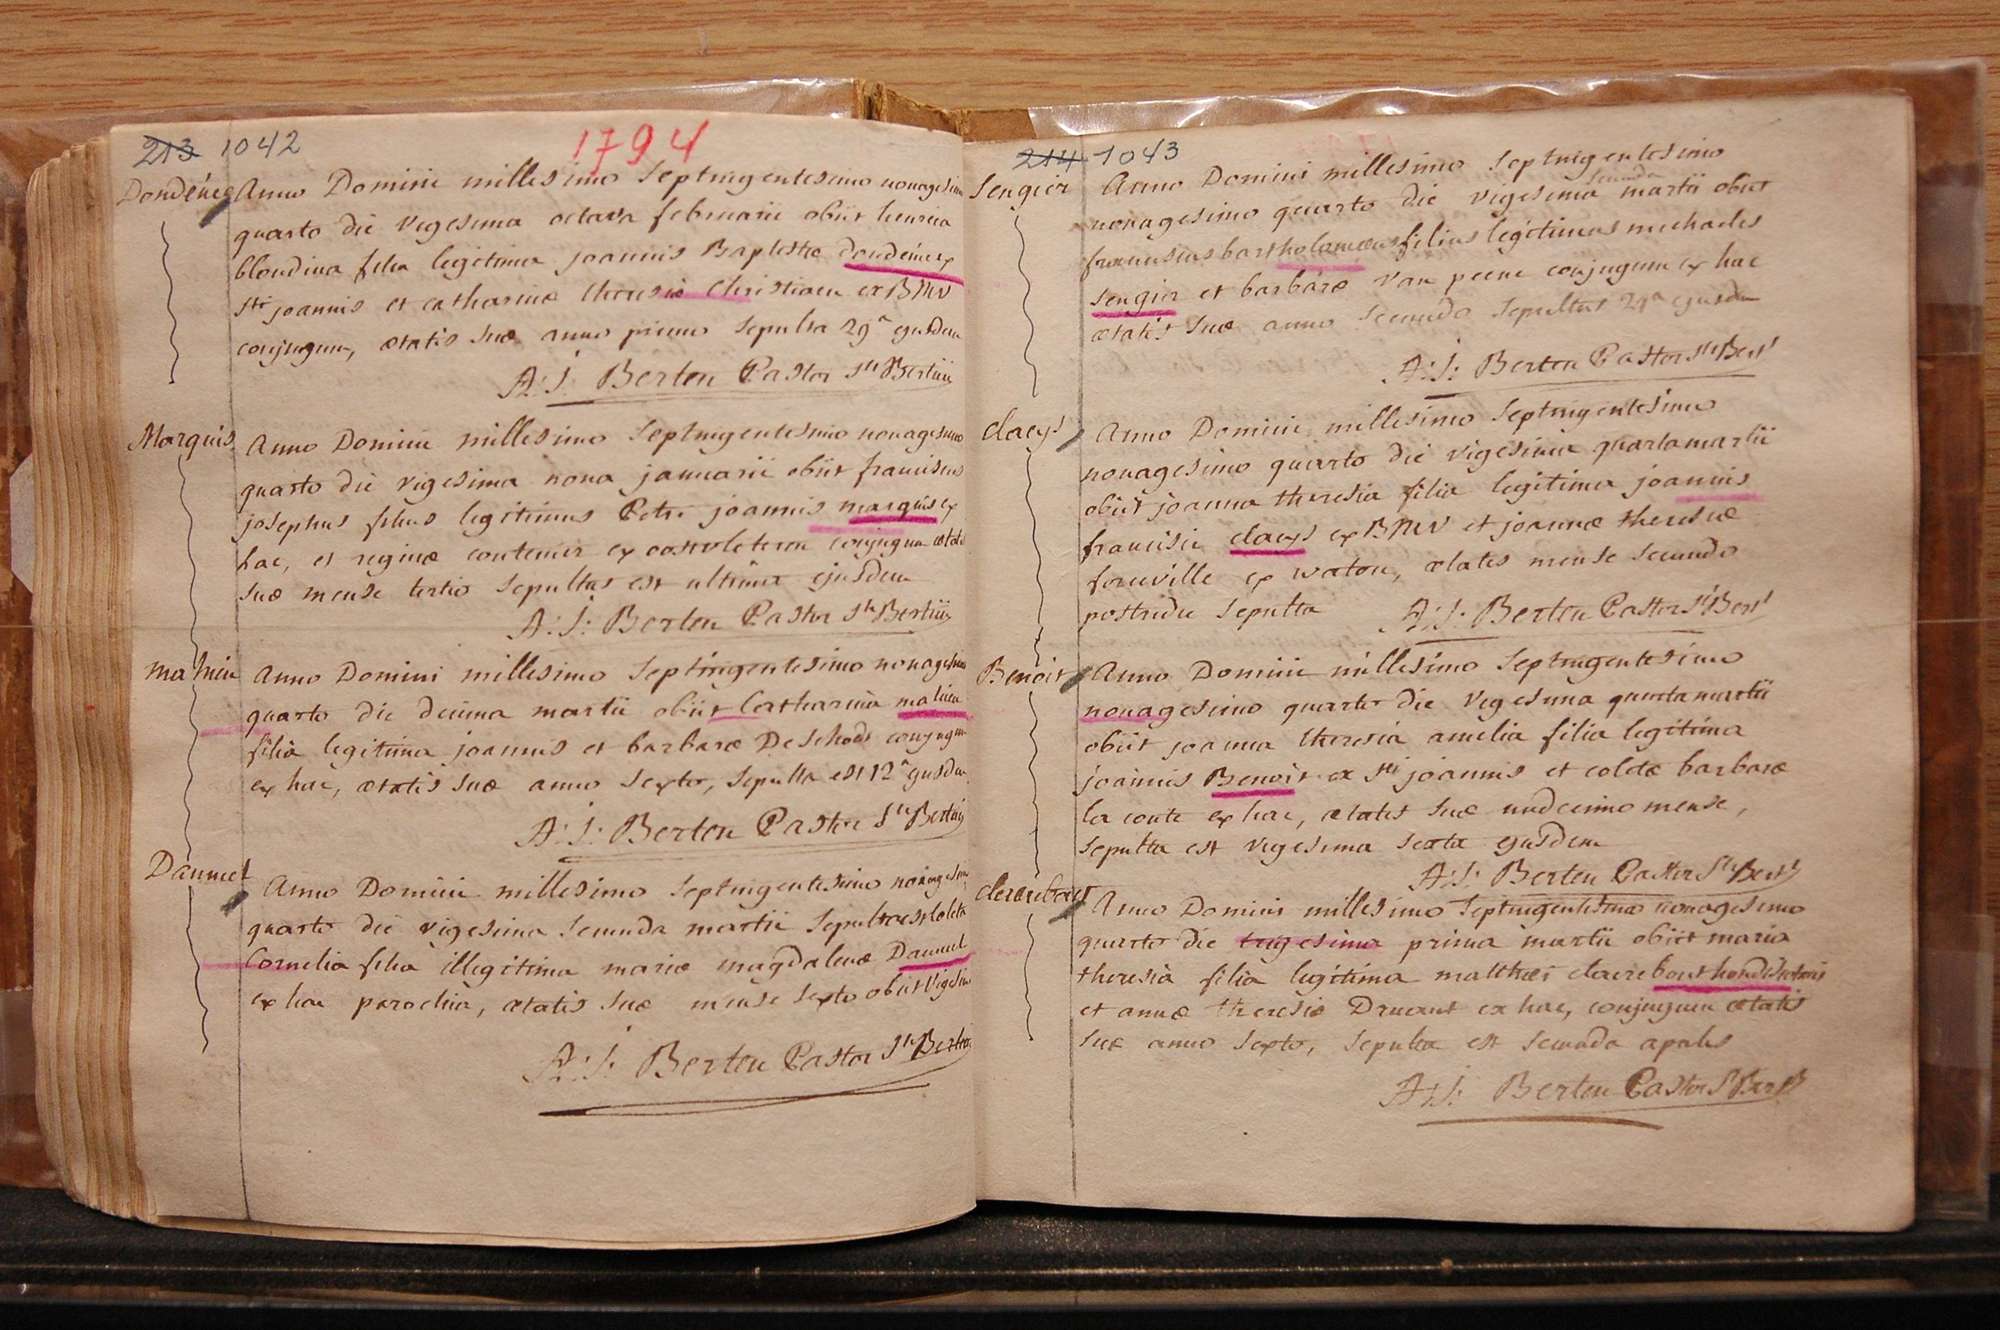 213 1042
1794
Dondéne Anno Domini millesimo Septingentesimo nonagesimo
quarto die vigesima octava februarii obiit henrica
blondina filia legitima joannis Baptistæ Dondeine ex
sti joannis et catharinæ theresiæ Christiaen ex BMV
conjugum, ætatis suæ anno primo sepulta 29a ejusdem
A: J: Berten Pastor sti Bertini
Marquis Anno Domini millesimo Septingentesimo nonagesimo
quarto die vigesima nona januarii obiit franciscus
josephus filius legitimus Petri joannis marquis ex
hac, et reginæ contenier ex conjugum ætatis
suæ mense tertio sepultus est ultima ejusdem
A: J: Berten Pastor sti Bertini
mahieu Anno Domini millesimo Septingentesimo nonagesimo
quarto die decima martii obiit Catharina mahieu
filia legitima joannis et barbaræ De Schodt conjugum
ex hac, ætatis suæ anno sexto, sepulta est 12a ejusdem
A: J: Berten Pastor Sti Bertini
Daunul Anno Domini millesimo Septingentesimo nonagesimo
quarto die vigesima secunda martii sepulta est Coleta
Cornelia filia illegitima mariæ magdalenæ Daunul
ex hac parochia, ætatis suæ mense sexto obiit vigesima
A: J: Berten Pastor Sti Bertini
214 1043
Sengier Anno Domini millesimo Septingentesimo
nonagesimo quarto die vigesima secunda martii obiit
franciscus bartholomæus filius legitimus michaelis
Sengier et barbaræ van peene conjugum ex hac
ætatis suæ anno secundo sepultus 29a ejusdem
A: J: Berten Pastor Sti Bert
claeys Anno Domini millesimo Septingentesimo
nonagesimo quarto die vigesima quarta martii
obiit joanna theresia filia legitima joannis
francisci claeys ex BMV et joannæ theresiæ
foreville ex watou, ætatis mense secundo
postridie sepulta A: J: Berten Pastor Sti Bert
Benoit Anno Domini millesimo Septingentesimo
nonagesimo quarto die vigesima quarta martii
obiit joanna theresia amelia filia legitima
joannis Benoit ex sti joannis et coletæ barbaræ
la conte ex hac, ætatis suæ undecimo mense,
sepulta est vigesima sexta ejusdem
A: J: Berten Pastor Sti Bert
clerebout Anno Domini millesimo Septingentesimo nonagesimo
quarto die trigesima prima martii obiit maria
theresia filia legitima matthæi clairebout
et annæ theresiæ Druant ex hac, conjugum ætatis
suæ anno sexto, sepulta est secunda aprilis
A: J: Berten Pastor Sti Bert